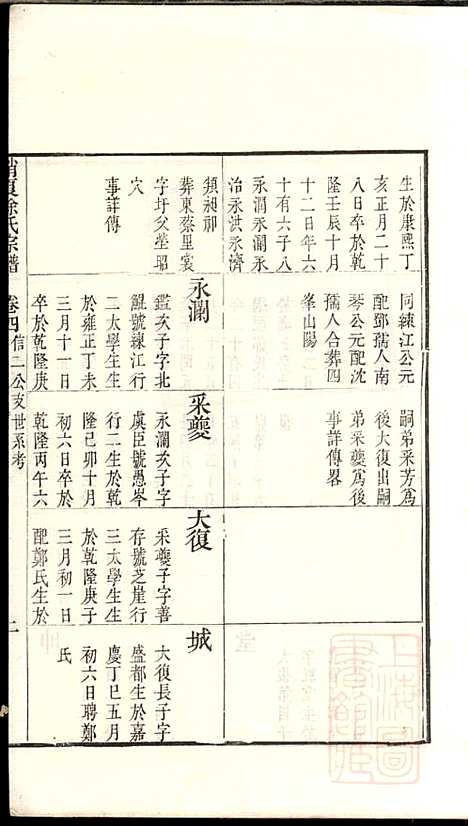 生於康熙丁
亥正月二十
八日卒於乾
隆壬辰十月
十二日年六
十有六子八
永潤永瀾永
治永洪永濟
須昶祁
葬東蔡里裳
字圩父塋昭
穴
事詳傳
同練江公元
配鄧孺人南
琴公元配沈
孺人合葬四
峯山陽
永瀾
鑑次子字北
鯤號練江行
二太學生生
於雍正丁未
三月十一日
卒於乾隆庚
嗣弟采芳爲
後大復出嗣
弟采夔爲後
事詳傳畧
采夔
永瀾次子字
虞臣號愚岑
行二生於乾
隆己卯十月
初六日卒於
乾隆丙午六
大復
采夔子字善
存號芝崖行
三太學生生
於乾隆庚子
三月初一日
配鄭氏生於
城
大復長子字
盛都生於嘉
慶丁巳五月
初六日聘鄭
氏
消夏徐氏宗譜
卷四信二公支世系考
二
上海圖
書館藏